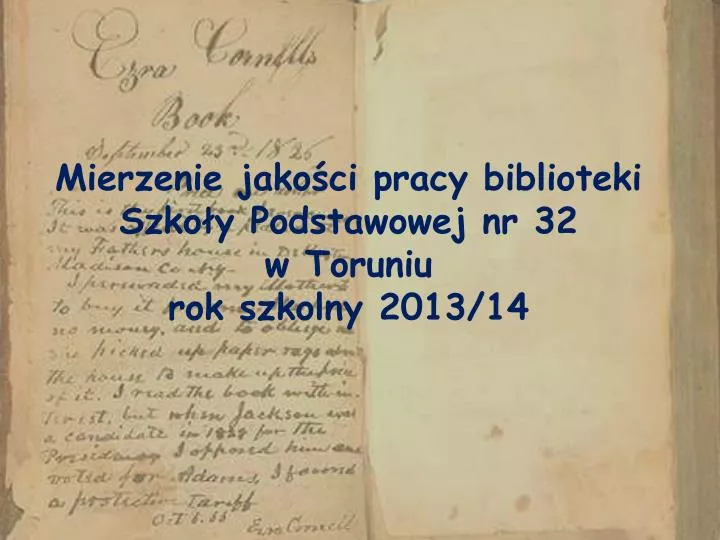 Ezra Cornells
Book
September 23rd 1826
Mierzenie jakości pracy biblioteki
This is the
Szkoły Podstawowej nr 32
It was
my Fathers house in
w Toruniu
Madison Co Ny
I persuaded my Mother
to buy it
rok szkolny 2013/14
no money, and to oblige
me picked up paper rags
the house to make up the price
of it. I read the book with in-
terest, but when Jackson was
a candidate in 1828 for the
Presidency I opposed him and
voted for Adams, I found
a protective tariff
Ezra Cornell